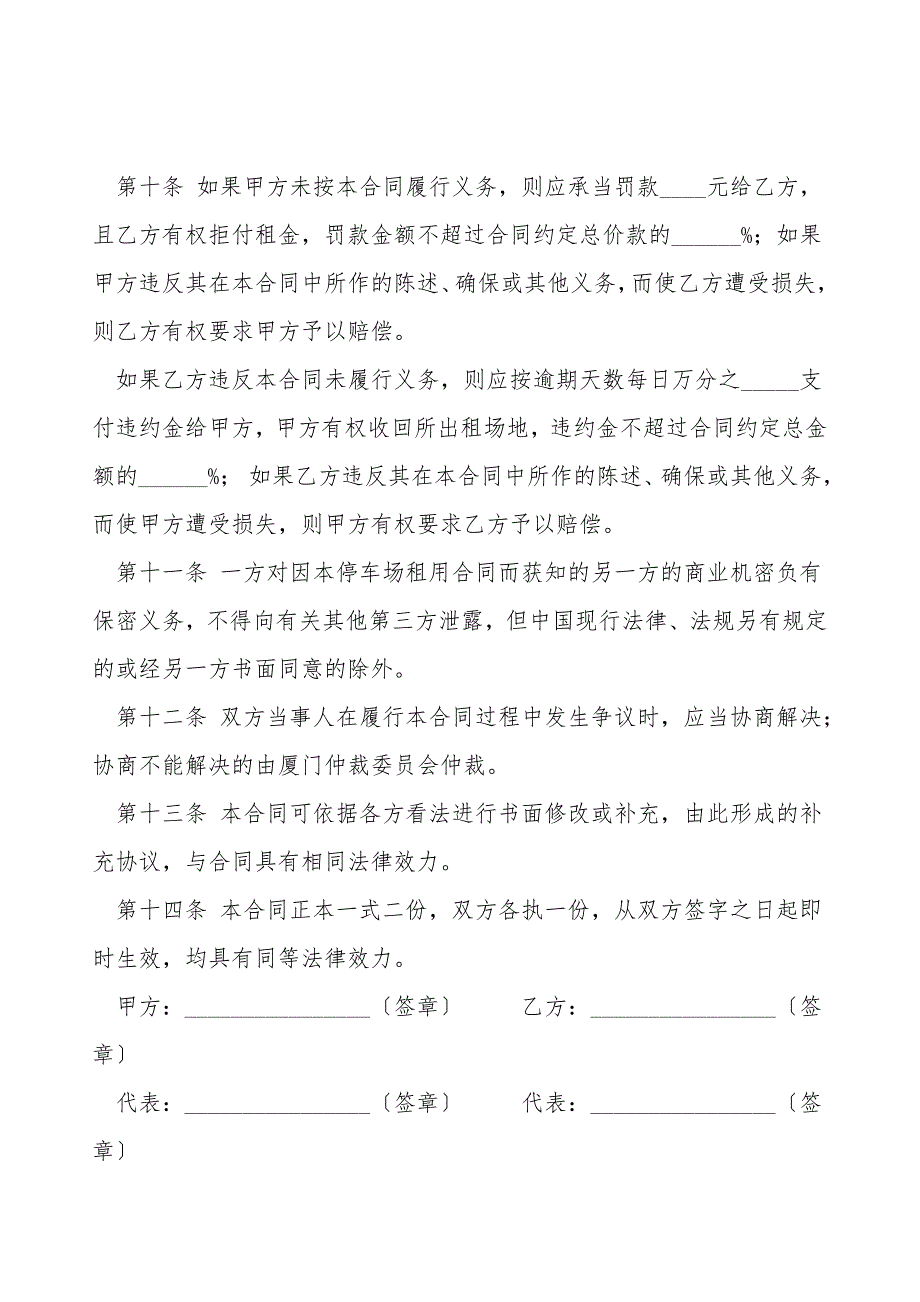 第十条 如果甲方未按本合同履行义务，则应承当罚款____元给乙方，
且乙方有权拒付租金，罚款金额不超过合同约定总价款的______%；如果
甲方违反其在本合同中所作的陈述、确保或其他义务，而使乙方遭受损失，
则乙方有权要求甲方予以赔偿。
如果乙方违反本合同未履行义务，则应按逾期天数每日万分之_____支
付违约金给甲方，甲方有权收回所出租场地，违约金不超过合同约定总金
额的______%； 如果乙方违反其在本合同中所作的陈述、确保或其他义务，
而使甲方遭受损失，则甲方有权要求乙方予以赔偿。
第十一条 一方对因本停车场租用合同而获知的另一方的商业机密负有
保密义务，不得向有关其他第三方泄露，但中国现行法律、法规另有规定
的或经另一方书面同意的除外。
第十二条 双方当事人在履行本合同过程中发生争议时，应当协商解决；
协商不能解决的由厦门仲裁委员会仲裁。
第十三条 本合同可依据各方看法进行书面修改或补充，由此形成的补
充协议，与合同具有相同法律效力。
第十四条 本合同正本一式二份，双方各执一份，从双方签字之日起即
时生效，均具有同等法律效力。
甲方：________________〔签章〕 乙方：________________〔签
章〕
代表：________________〔签章〕 代表：________________〔签
章〕